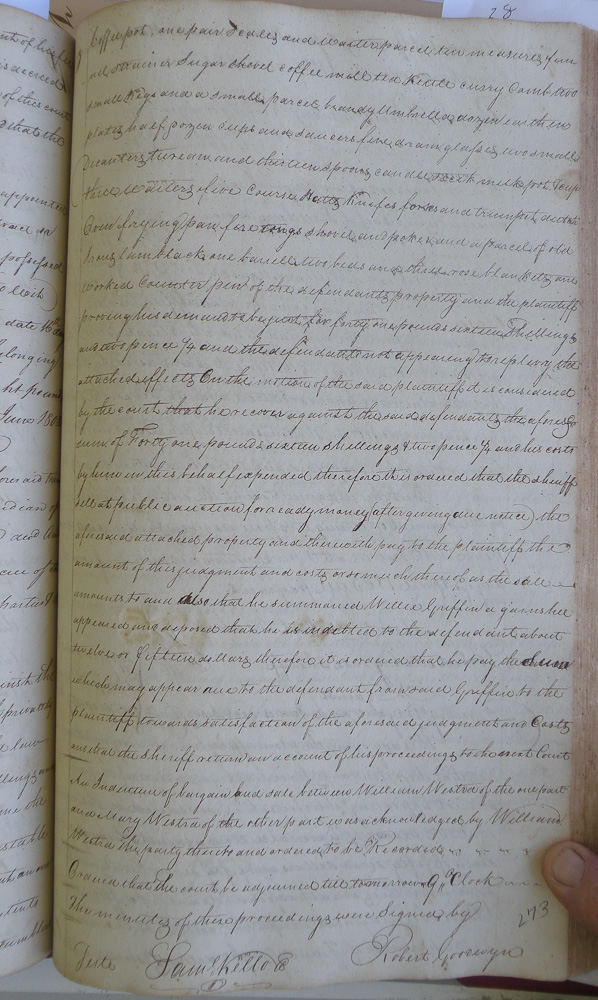 28
Coffee pot, one pair Scales and Waiter parcel tin measures
and strainer Sugar shovel coffee mill tea Kettle curry Comb two
small Kegs and a small parcel brandy Umbrella dozen earthen
plates half dozen cups and saucers five dram glasses two small
Decanters tureen and thirteen spoons candle stick milk pot
three Waiters five Course Hatts Knifes forks and trumpet
Cow frying pan fire tongs shovel and poker and a parcel of old
Iron, lamblack one barrell two beds and three rose blankets one
worked Counter pin of the defendants property and the plaintiff
proving his demand to be just for forty one pounds sixteen Shillings
and two pence ¼ and the defendant not appearing to replevy the
attached effects On the motion of the said plaintiff it is considered
by the court that he recover against the said defendant the aforesd
sum of Forty one pounds sixteen shillings & two pence ¼ and his costs
by him in this behalf expended therefore it is ordered that the sheriff
sell at public auction for ready money (after giving due notice) the
aforesaid attached property and therewith pay to the plaintiff the
amount of this judgment and costs or so much thereof as the sale
amounts to and also that he summoned Willie Griffin a garnishee
appeared and deposed that he is indebted to the defendant about
twelve or fifteen dollars therefore it is ordered that he pay the Sum
which may appear due to the defendant from said Griffin to the
plaintiff towards satisfaction of the aforesaid judgment and Costs
and that the sheriff return an account of his proceedings to the next Court
An Indenture of bargain and sale between William Westra of the one part
and Mary Westra of the other part was acknowledged by William
Westra the party thereto and ordered to be Recorded
Ordered that the court be adjourned till tomorrow 9 o Clock
The minutes of these proceedings were Signed by
273
Teste Saml Kello C
Robert Goodwyn